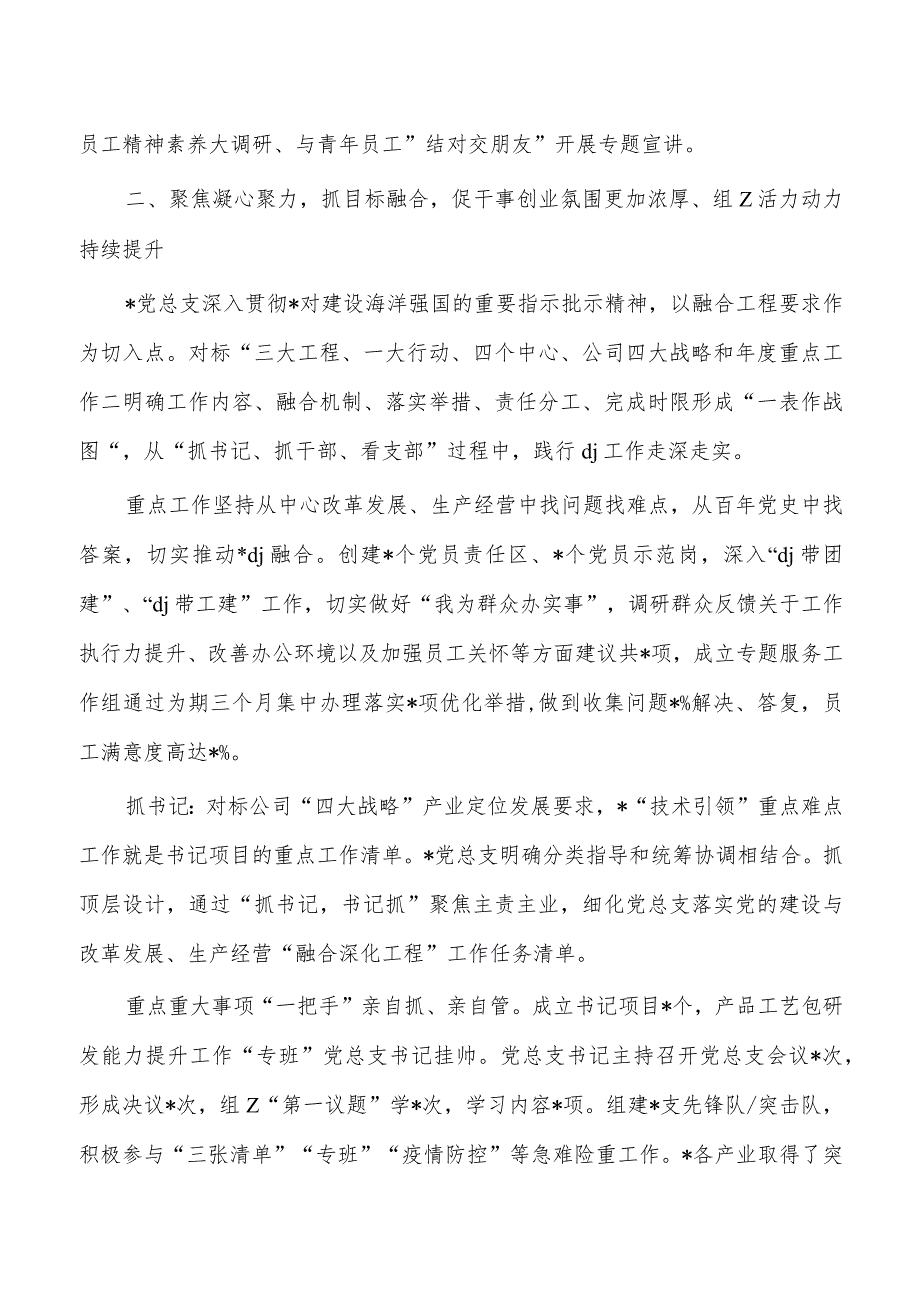 员工精神素养大调研、与青年员工”结对交朋友”开展专题宣讲。
二、聚焦凝心聚力，抓目标融合，促干事创业氛围更加浓厚、组Z活力动力
持续提升
*党总支深入贯彻*对建设海洋强国的重要指示批示精神，以融合工程要求作
为切入点。对标“三大工程、一大行动、四个中心、公司四大战略和年度重点工
作二明确工作内容、融合机制、落实举措、责任分工、完成时限形成“一表作战
图“，从“抓书记、抓干部、看支部”过程中，践行dj工作走深走实。
重点工作坚持从中心改革发展、生产经营中找问题找难点，从百年党史中找
答案，切实推动*dj融合。创建*个党员责任区、*个党员示范岗，深入“dj带团
建”、“dj带工建”工作，切实做好“我为群众办实事”，调研群众反馈关于工作
执行力提升、改善办公环境以及加强员工关怀等方面建议共*项，成立专题服务工
作组通过为期三个月集中办理落实*项优化举措,做到收集问题*%解决、答复，员
工满意度高达*%。
抓书记：对标公司“四大战略”产业定位发展要求，*“技术引领”重点难点
工作就是书记项目的重点工作清单。*党总支明确分类指导和统筹协调相结合。抓
顶层设计，通过“抓书记，书记抓”聚焦主责主业，细化党总支落实党的建设与
改革发展、生产经营“融合深化工程”工作任务清单。
重点重大事项“一把手”亲自抓、亲自管。成立书记项目*个，产品工艺包研
发能力提升工作“专班”党总支书记挂帅。党总支书记主持召开党总支会议*次，
形成决议*次，组Z“第一议题”学*次，学习内容*项。组建*支先锋队/突击队，
积极参与“三张清单”“专班”“疫情防控”等急难险重工作。*各产业取得了突